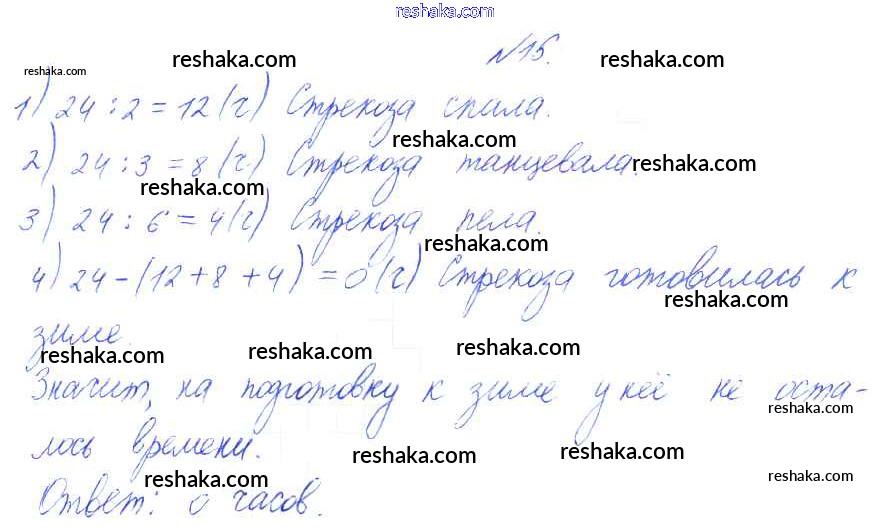 reshaka.com
№15.
reshaka.com reshaka.com reshaka.com
1) 24 : 2 = 12 (ч) Стрекоза спала.
reshaka.com
2) 24 : 3 = 8 (ч) Стрекоза танцевала.
reshaka.com reshaka.com
3) 24 : 6 = 4 (ч) Стрекоза пела.
reshaka.com
4) 24 - (12 + 8 + 4) = 0 (ч) Стрекоза готовилась к
reshaka.com
зиме.
reshaka.com reshaka.com reshaka.com
Значит, на подготовку к зиме у неё не оста-
reshaka.com
лось времени.
reshaka.com reshaka.com
Ответ: 0 часов.
reshaka.com reshaka.com